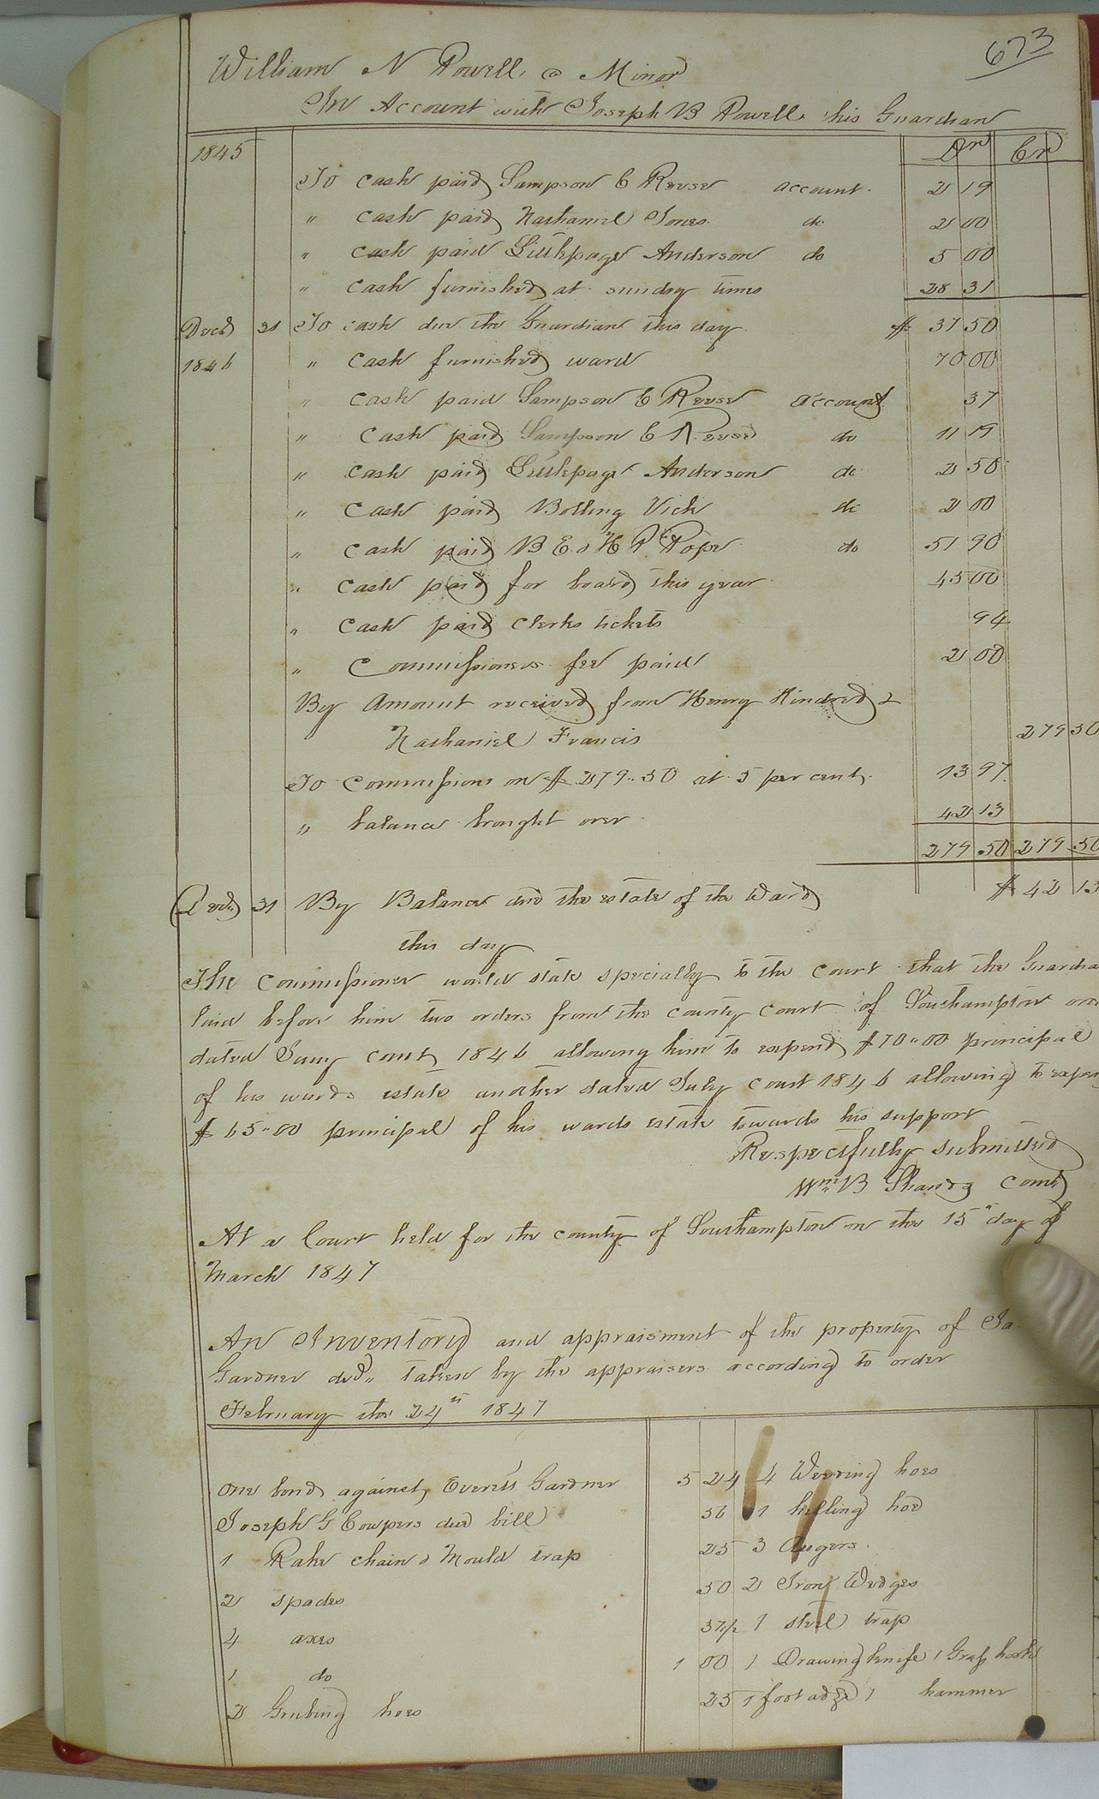 673
William N Powell, a Minor
In Account with Joseph B Powell his Guardian
1845 Dr Cr
To cash paid Sampson C Reese account 2 19
" cash paid Nathaniel Jones do 2 00
" cash paid Littlepage Anderson do 5 00
" cash furnished at sunday times 28 31
Decr 31 To cash due the Guardian this day $ 37 50
1846 " cash furnished ward 70 00
" cash paid Sampson C Reese account 37
" cash paid Sampson C Reese do 11 19
" cash paid Littlepage Anderson do 2 50
" cash paid Bolling Vick do 2 00
" cash paid B E & H P Pope do 51 90
" cash paid for board this year 45 00
" cash paid clerks tickets 94
" Commissioners fee paid 2 00
By Amount received from Henry Hindred &
Nathaniel Francis 279 50
To Commissions on $ 279.50 at 5 per cent, 13 97
" balance brought over 42 13
279.50 279.50
$ 42 13
Decr 31 By Balance due the estate of the Ward
this day
The Commissioner would state specially to the Court that the Guardia
laid before him two orders from the county court of Southampton one
dated Jany court, 1846 allowing him to expend $70.00 principal
of his wards estate another dated July court 1846 allowing to expen
$ 65.00 principal of his wards estate towards his support
Respectfully submitted
Wm B Shands Comr
At a Court held for the county of Southampton on the 15th day of
March 1847
An Inventory and appraisment of the property of Ja
Gardner decd. taken by the appraisers according to order
February the 24th 1847
one bond against, Everett Gardner 5 24 4 Weeding hoes
Joseph G Cowpers due bill 56 1 hilling hoe
1 Rake chain & Mould trap 25 3 Augers.
2 spades 50 2 Iron Wedges
4 axes 37 1/2 1 steel trap
1 do 1 00 1 Drawing knife 1 Grass hook
2 Grubing hoes 25 1 foot adze 1 hammer